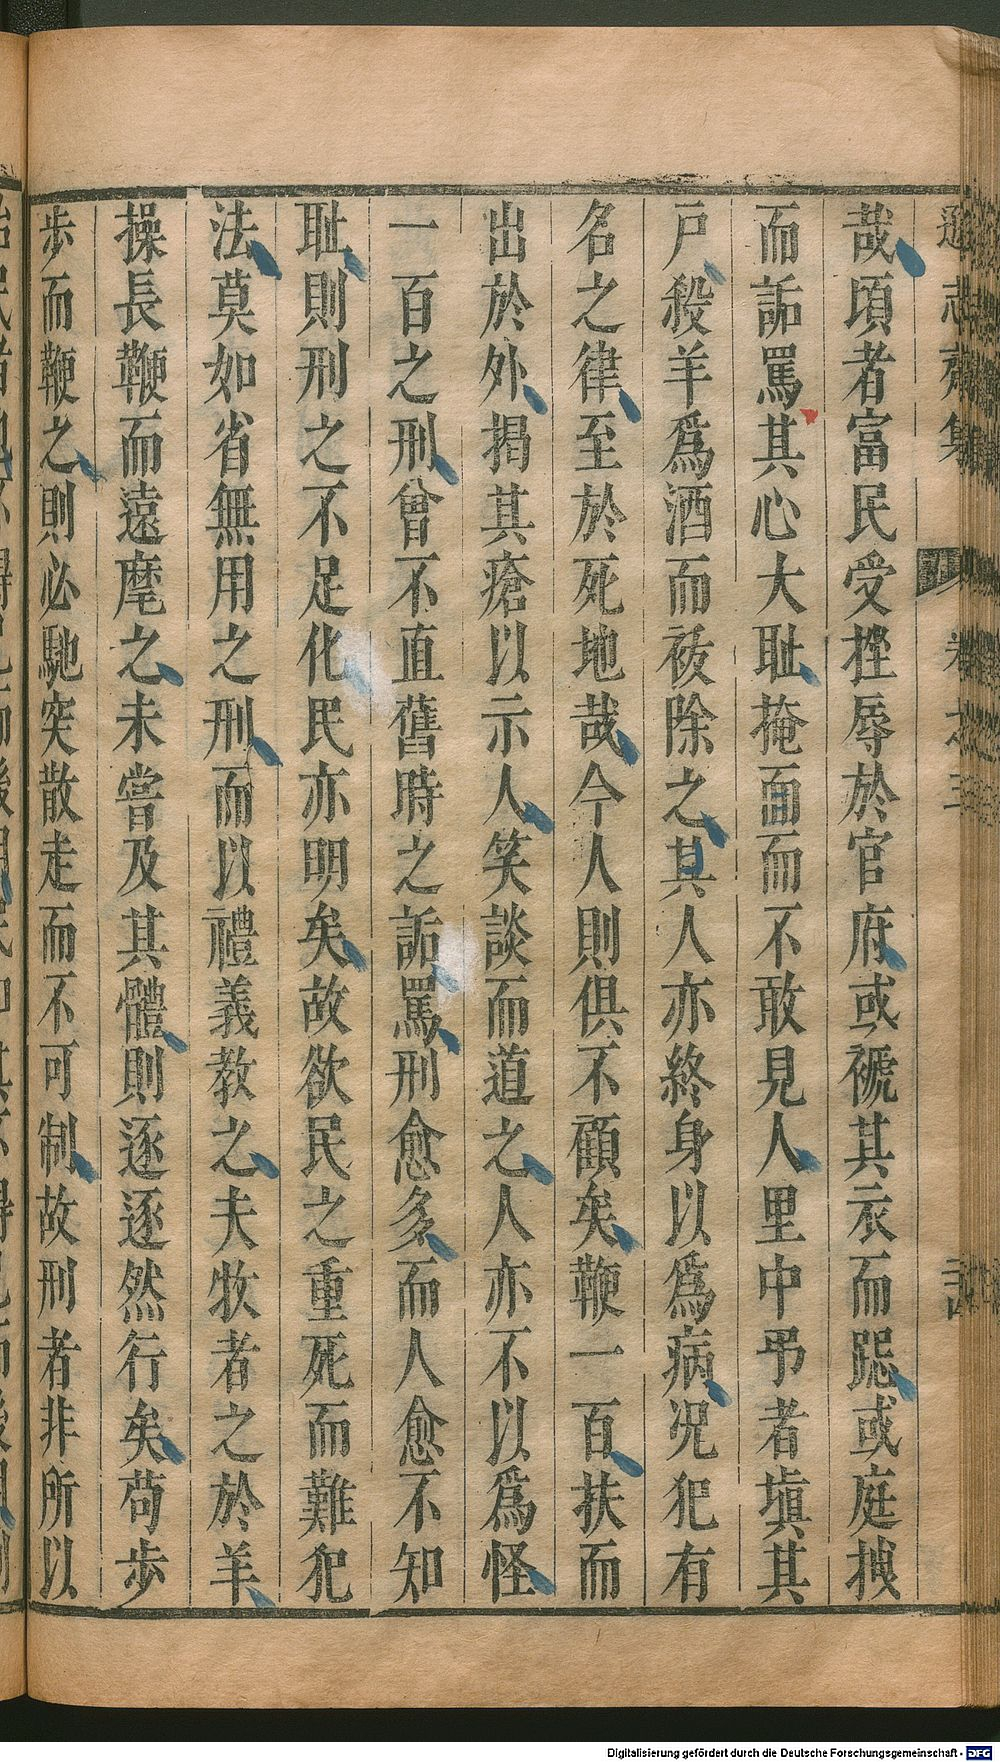 哉頃者富民受挫辱於官府或褫其衣而跽或庭拽
而詬罵其心大耻掩面而不敢見人里中弔者塡其
戶殺羊爲酒而祓除之其人亦終身以爲病况犯有
名之律至於死地哉今人則俱不顧矣鞭一百扶而
出於外揭其瘡以示人笑談而道之人亦不以爲怪
一百之刑曾不直舊時之詬罵刑愈多而人愈不知
耻則刑之不足化民亦明矣故欲民之重死而難犯
法莫如省無用之刑而以禮義教之夫牧者之於羊
操長鞭而遠麾之未嘗及其體則逐逐然行矣苟步
步而鞭之則必馳突散走而不可制故刑者非所以
遜志齋集
卷之三
Digitalisierung gefördert durch die Deutsche Forschungsgemeinschaft - DFG